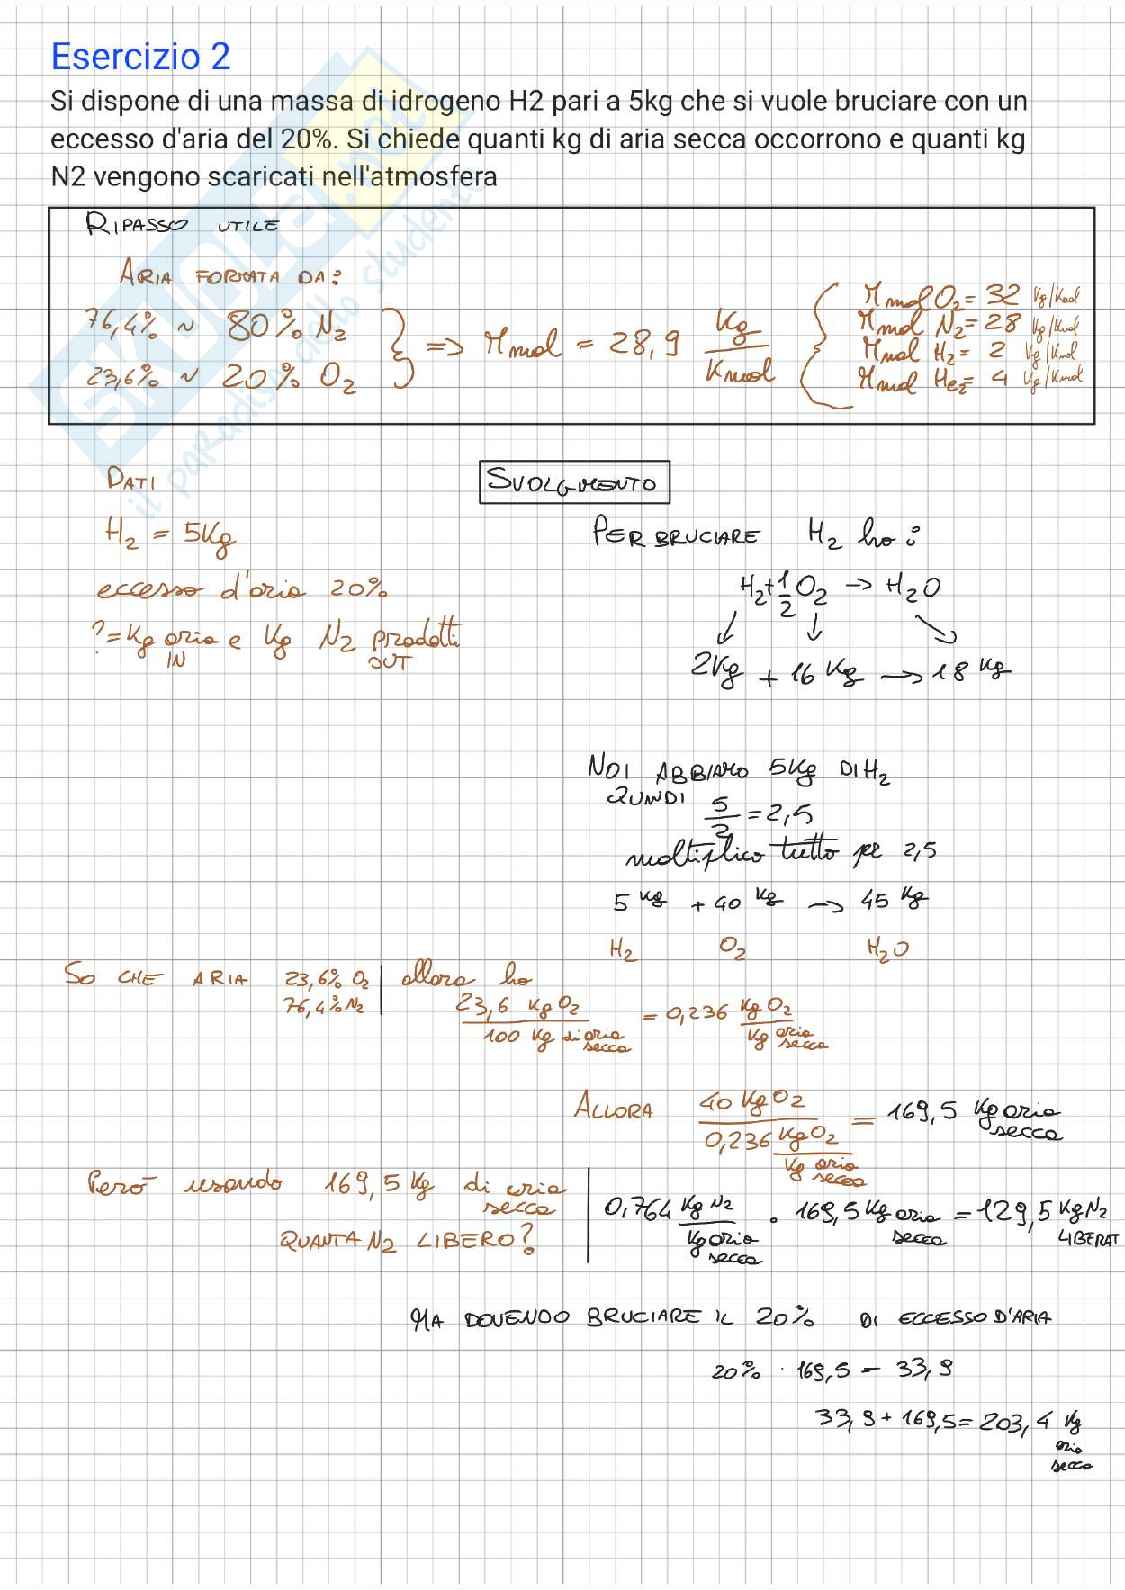 Esercizio 2
Si dispone di una massa di idrogeno H2 pari a 5kg che si vuole bruciare con un
eccesso d'aria del 20%. Si chiede quanti kg di aria secca occorrono e quanti kg
N2 vengono scaricati nell'atmosfera
RIPASSO UTILE
ARIA FORMATA DA:
76,4% ~ 80% N2
23,6% ~ 20% O2
=> Mmol = 28,9 Kg/Kmol
Mmol O2 = 32 Kg/Kmol
Mmol N2 = 28 Kg/Kmol
Mmol H2 = 2 Kg/Kmol
Mmol He = 4 Kg/Kmol
SKUOLA.net
il paradiso dello studente
DATI
H2 = 5Kg
eccesso d'aria 20%
? = Kg aria e Kg N2 prodotti
IN OUT
SVOLGIMENTO
PER BRUCIARE H2 ho:
H2 + 1/2 O2 -> H2O
2Kg + 16 Kg -> 18 Kg
NOI ABBIAMO 5Kg DI H2
QUINDI 5/2 = 2,5
moltiplico tutto per 2,5
5 Kg + 40 Kg -> 45 Kg
H2 O2 H2O
SO CHE ARIA 23,6% O2
76,4% N2
allora ho
23,6 Kg O2 / 100 Kg di aria secca = 0,236 Kg O2 / Kg aria secca
ALLORA 40 Kg O2 / 0,236 Kg O2 / Kg aria secca = 169,5 Kg aria secca
Però usando 169,5 Kg di aria
secca
QUANTA N2 LIBERO?
0,764 Kg N2 / Kg aria secca · 169,5 Kg aria secca = 129,5 Kg N2
LIBERAT
MA DOVENDO BRUCIARE IL 20% DI ECCESSO D'ARIA
20% · 169,5 = 33,9
33,9 + 169,5 = 203,4 Kg
aria
secca